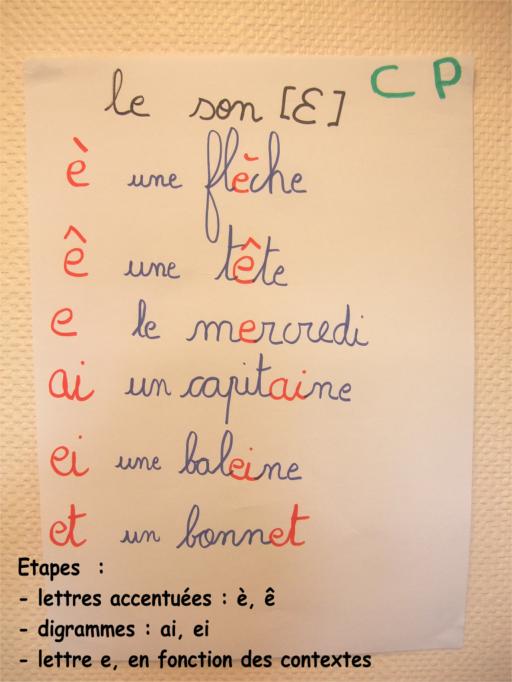 le son [Ɛ] CP
è une flèche
ê une tête
e le mercredi
ai un capitaine
ei une baleine
et un bonnet
Etapes :
- lettres accentuées : è, ê
- digrammes : ai, ei
- lettre e, en fonction des contextes